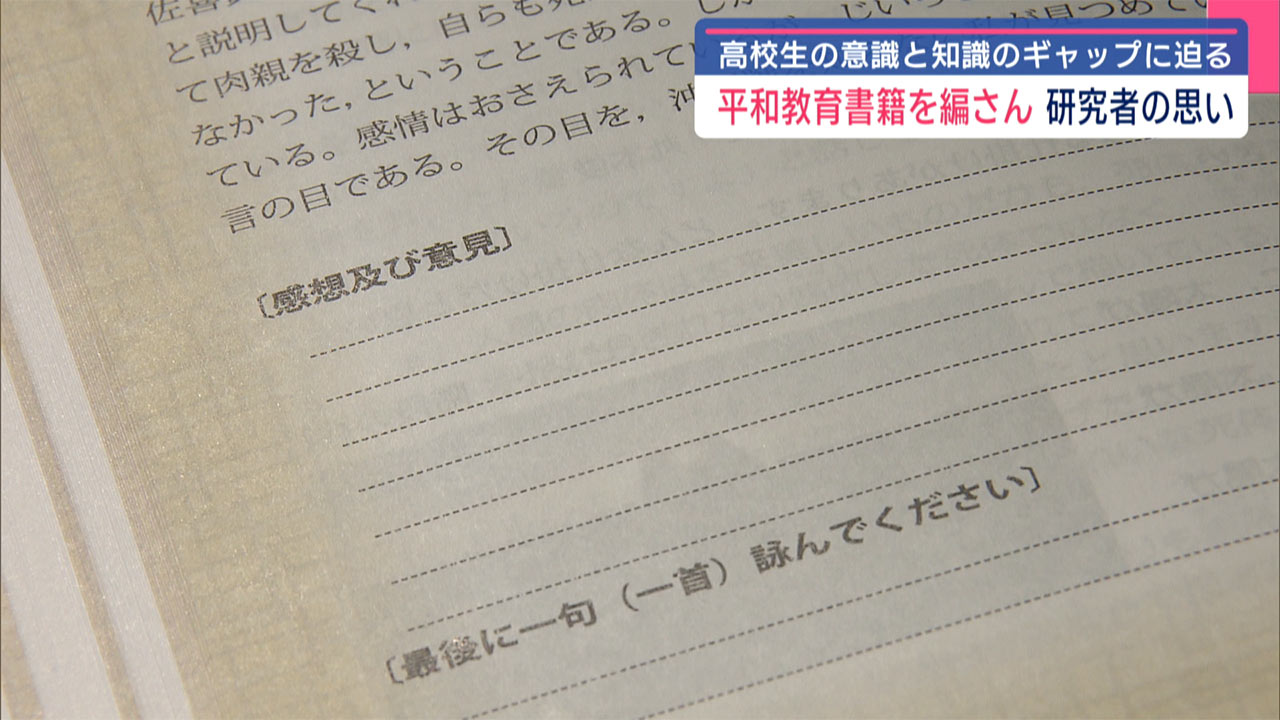 高校生の意識と知識のギャップに迫る
平和教育書籍を編さん 研究者の思い
佐喜
と説明してくれ
て肉親を殺し，自らも死
なかった，ということである。しか
ている。感情はおさえられてい
言の目である。その目を，沖
じいち
が見つめてい
〔感想及び意見〕
〔最後に一句（一首）詠んでください〕